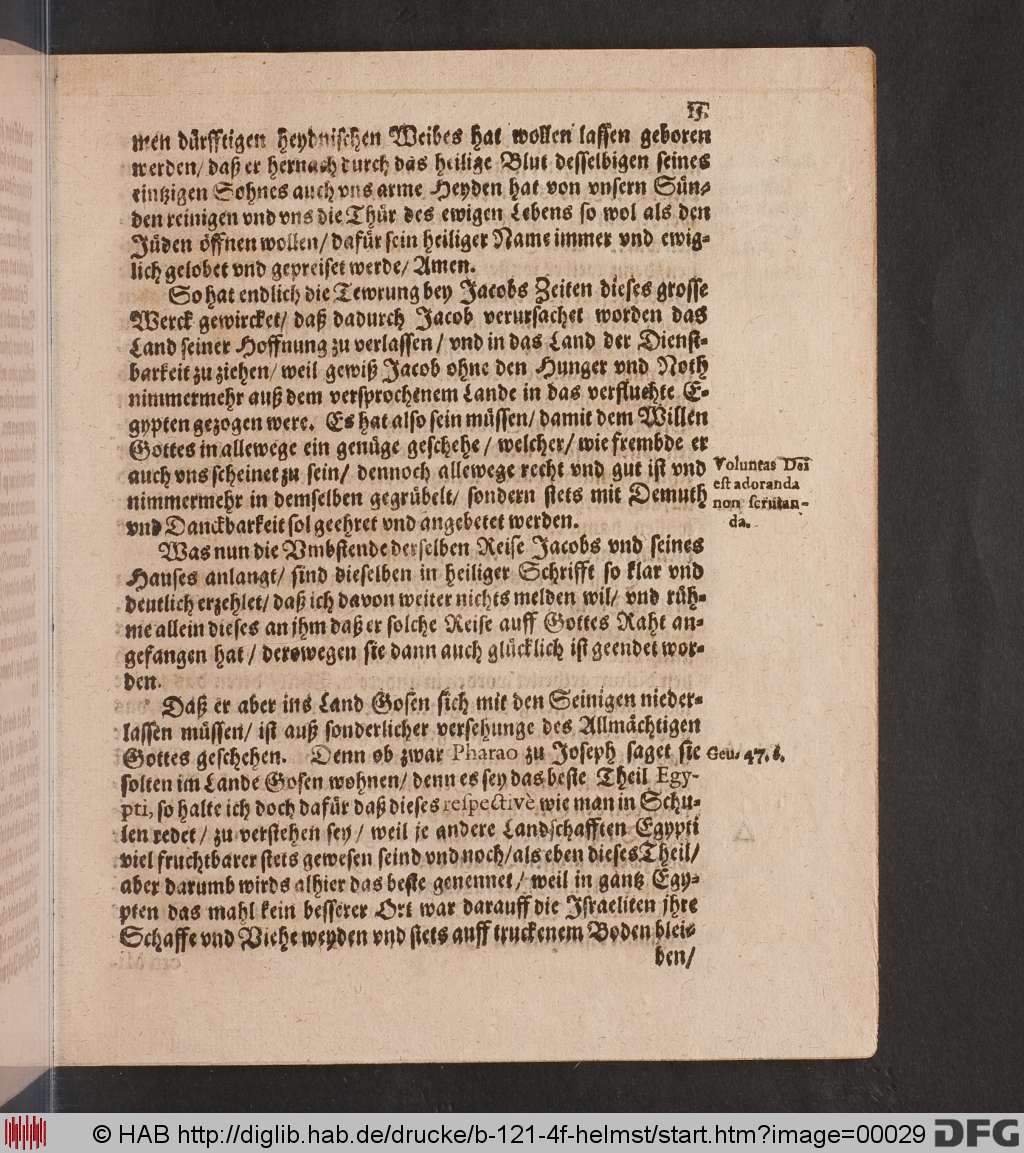 15.
men dürfftigen heydnischen Weibes hat wollen lassen geboren
werden/ daß er hernach durch das heilige Blut desselbigen seines
eintzigen Sohnes auch vns arme Heyden hat von vnsern Sün-
den reinigen vnd vns die Thür des ewigen Lebens so wol als den
Jüden öffnen wollen/ dafür sein heiliger Name immer vnd ewig-
lich gelobet vnd gepreiset werde/ Amen.
So hat endlich die Tewrung bey Jacobs Zeiten dieses grosse
Werck gewircket/ daß dadurch Jacob verursachet worden das
Land seiner Hoffnung zu verlassen/ vnd in das Land der Dienst-
barkeit zu ziehen/ weil gewiß Jacob ohne den Hunger vnd Noth
nimmermehr auß dem versprochenem Lande in das verfluchte E-
gypten gezogen were. Es hat also sein müssen/ damit dem Willen
Gottes in allewege ein genüge geschehe/ welcher/ wie frembde er
auch vns scheinet zu sein/ dennoch allewege recht vnd gut ist vnd
nimmermehr in demselben gegrübelt/ sondern stets mit Demuth
vnd Danckbarkeit sol geehret vnd angebetet werden.
Voluntas Dei
est adoranda
non scrutan-
da.
Was nun die Vmbstende derselben Reise Jacobs vnd seines
Hauses anlangt/ sind dieselben in heiliger Schrifft so klar vnd
deutlich erzehlet/ daß ich davon weiter nichts melden wil/ vnd rüh-
me allein dieses an jhm daß er solche Reise auff Gottes Raht an-
gefangen hat/ derowegen sie dann auch glücklich ist geendet wor-
den.
Daß er aber ins Land Gosen sich mit den Seinigen nieder-
lassen müssen/ ist auß sonderlicher versehunge des Allmächtigen
Gottes geschehen. Denn ob zwar Pharao zu Joseph saget sie
Gen. 47. 6.
solten im Lande Gosen wohnen/ denn es sey das beste Theil Egy-
pti, so halte ich doch dafür daß dieses respectivè wie man in Schu-
len redet/ zu verstehen sey/ weil je andere Landschafften Egypti
viel fruchtbarer stets gewesen seind vnd noch/ als eben dieses Theil/
aber darumb wirds alhier das beste genennet/ weil in gantz Egy-
pten das mahl kein besserer Ort war darauff die Israeliten jhre
Schaffe vnd Viehe weyden vnd stets auff truckenem Boden blei-
ben/
© HAB http://diglib.hab.de/drucke/b-121-4f-helmst/start.htm?image=00029
DFG